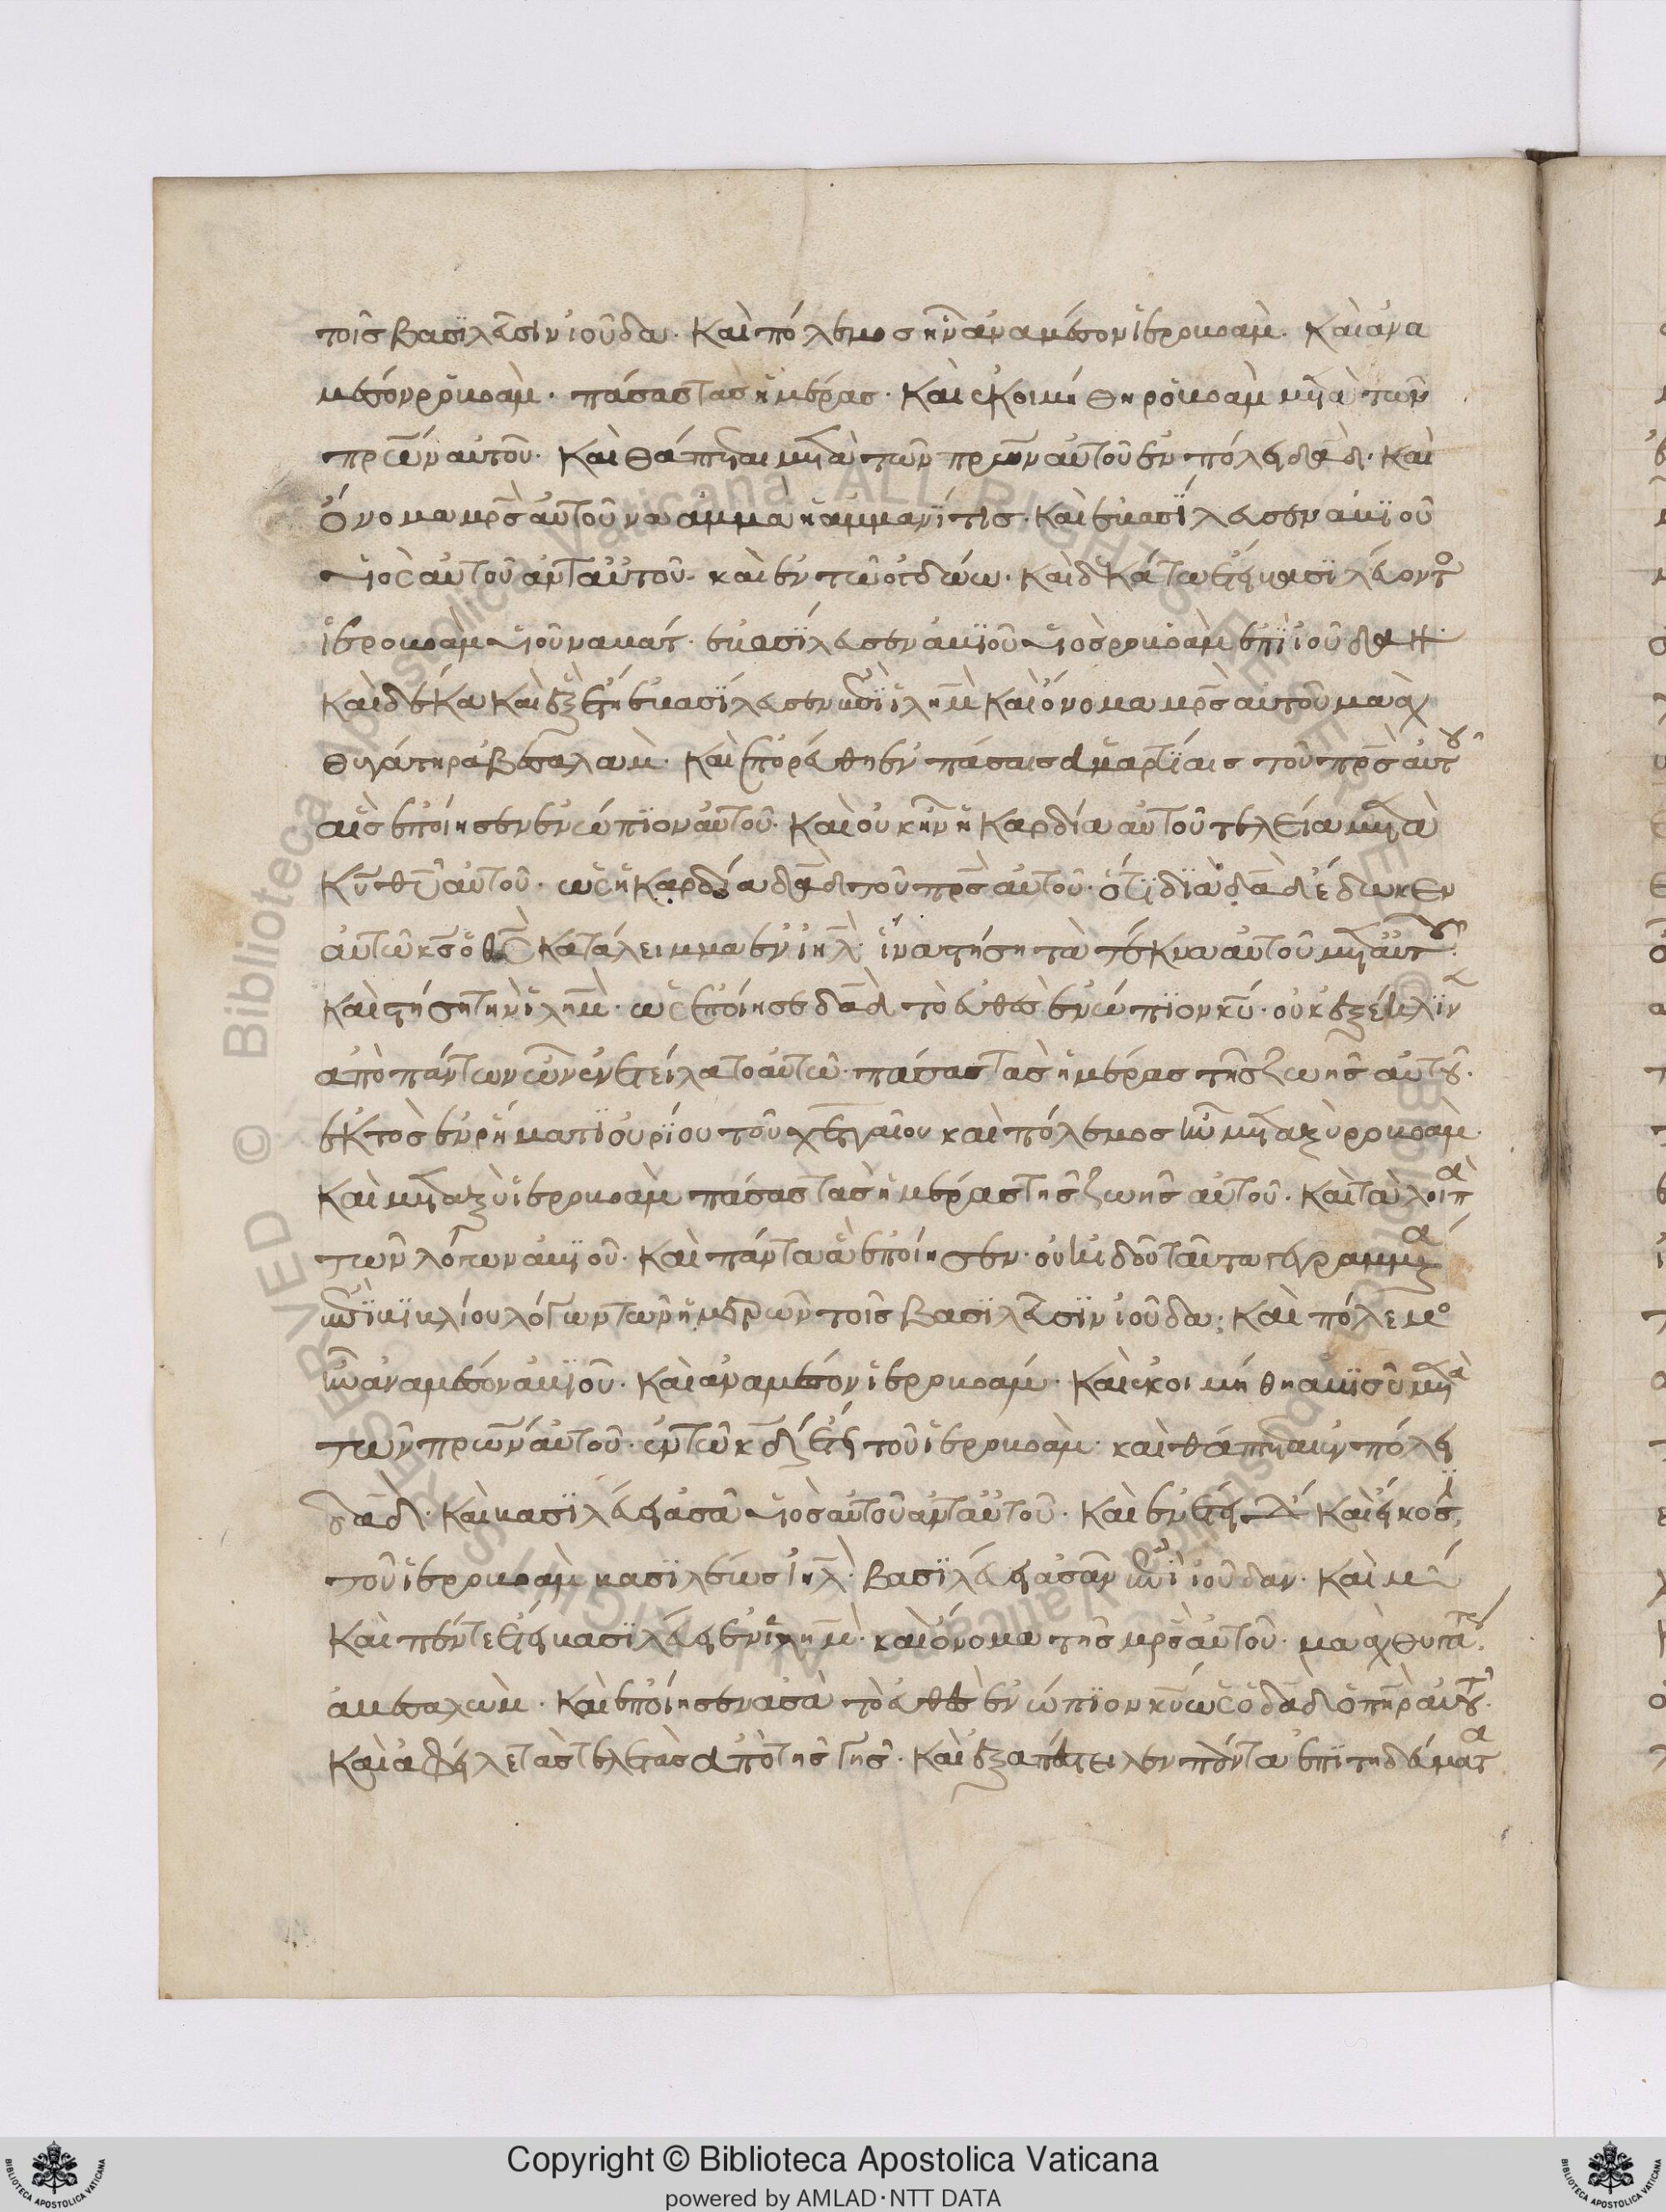 τοῖς βασϊλεῦσιν ἰούδα· καὶ πόλεμος ἦν ἀναμέσον ἱεροβοὰμ· καὶ ἀνα
μέσον ῥοβοὰμ· πάσας τὰς ἡμέρας· καὶ ἐκοιμήθη ῥοβοὰμ μετὰ τῶν
πρ̅ων αὐτοῦ· καὶ θάπτεται μετὰ τῶν πρ̅ων αὐτοῦ ἐν πόλει δα̅δ· καὶ
ὄνομα μρ̅ς αὐτοῦ νααμμὰ ἡ ἀμμανίτις· καὶ ἐβασΐλευσεν ἀβϊοῦ
υἱὸς αὐτοῦ ἀντ αὐτοῦ· καὶ ἐν τῶ ὀγδόω· καὶ δεκάτω ἔτει βασϊλεύοντο
ἱεροβοὰμ υἱοῦ ναβάτ· ἐβασΐλευσεν ἀβϊοῦ υἱὸς ῥοβοὰμ ἐπὶ ἰούδα
καὶ δέκα καὶ ἓξ ἔτη ἐβασΐλευσεν ἐπὶ ἰλη̅μ καὶ ὄνομα μρ̅ς αὐτοῦ μααχ
θυγάτηρ ἀβεσαλωμ· καὶ ἐπορεύθη ἐν πάσαις ἁμαρτίαις τοῦ πρ̅ς αὐτου
αἷς ἐποίησεν ἐνώπϊον αὐτοῦ· καὶ οὐκ ἦν ἡ καρδία αὐτοῦ τελεία μετὰ
κυ̅ θυ̅ αὐτοῦ· ὡς ἡ καρδία δα̅δ τοῦ πρ̅ς αὐτοῦ· ὅτϊ δϊὰ δα̅δ ἔδωκεν
αὐτῶ κς̅ ὁ θς̅ κατάλειμμα ἐν ιη̅λ· ἵνα στήση τὰ τέκνα αὐτοῦ μετ αὐτου
καὶ στήση τὴν ἰλη̅μ· ὡς ἐποίησε δα̅δ τὸ εὐθὲς ἐνώπϊον κυ̅· οὐκ ἐξέκλϊν
ἀπὸ πάντων ὧν ἐνετείλατο αὐτῶ πάσας τὰς ἡμέρας τῆς ζωῆς αὐτου·
ἐκτὸς ἐν ῥήματϊ οὐρίου τοῦ χετταίου καὶ πόλεμος ἦν μεταξὺ ῥοβοὰμ·
καὶ μεταξὺ ἱεροβοὰμ πάσας τὰς ἡμέρας τῆς ζωῆς αὐτοῦ· καὶ τὰ λοιπα
τῶν λόγων ἀβϊοῦ· καὶ πάντα ἃ ἐποίησεν· οὐκ ἰδοῦ ταῦτα γεγραμμέα
ἐπὶ βϊβλίου λόγων τῶν ἡμερῶν τοῖς βασϊλεῦσϊν ἰούδα· καὶ πόλεμο
ἦν ἀναμέσον ἀβϊοῦ· καὶ ἀναμέσον ἱεροβοάμ· καὶ ἐκοιμήθη ἀβϊοῦ μετὰ
τῶν πρ̅ων αὐτοῦ· ἐν τῶ κδ ἔτει τοῦ ἱεροβοὰμ· καὶ θάπτεται ἐν πόλει
δα̅δ· καὶ βασϊλεύει ἀσὰ υἱὸς αὐτοῦ ἀντ αὐτοῦ· καὶ ἐν ἔτει καὶ εἰκοσϊ
τοῦ ἱεροβοὰμ βασϊλέως ιη̅λ· βασϊλεύει ἀσὰν ἐπὶ ἰούδαν· καὶ μ
καὶ πέντε ἔτει βασϊλεύει ἐν ἰλη̅μ· καὶ ὄνομα τῆς μρ̅ς αὐτοῦ· μααχ θυγατ
ἀβεσαλωμ· καὶ ἐποίησεν ἀσὰ τὸ εὐθὲς ἐνώπϊον κυ̅ ὡς ὁ δα̅δ ὁ πη̅ρ αὐτου·
καὶ ἀφεῖλε τὰς τελετὰς ἀπὸ τῆς γῆς· καὶ ἐξαπέστειλεν πάντα ἐπϊτηδεύματα
Copyright © Biblioteca Apostolica Vaticana
powered by AMLAD·NTT DATA